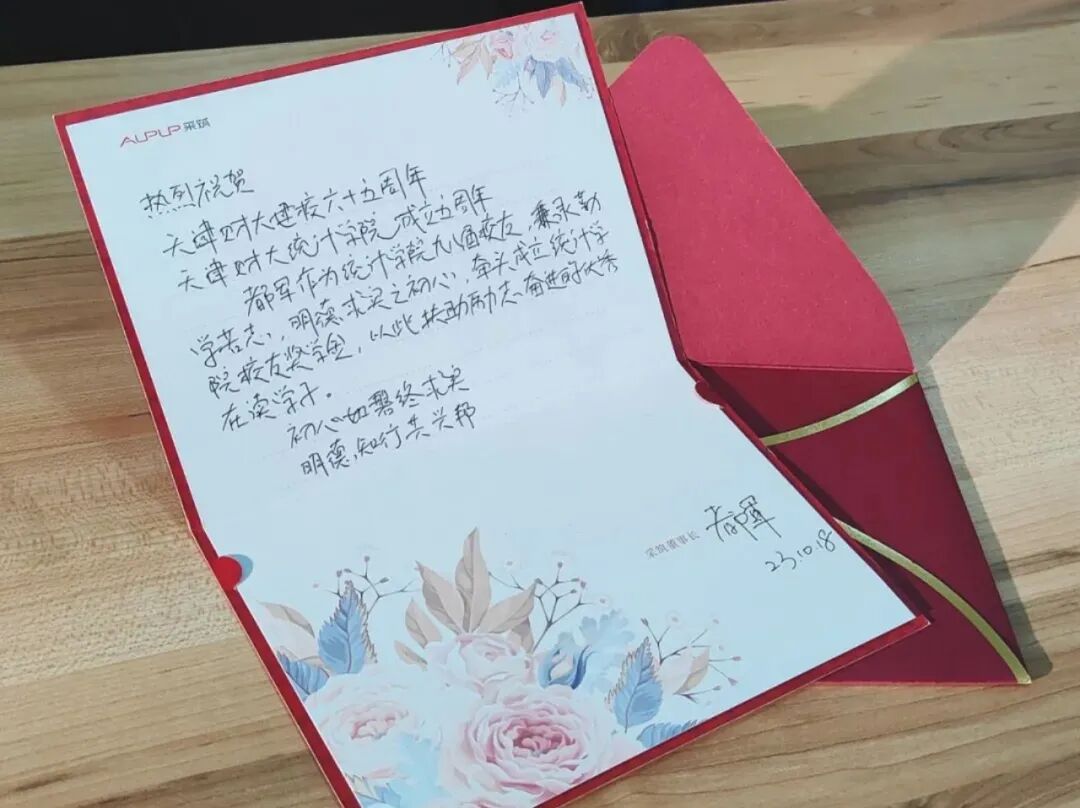 AUPUP 采筑
热烈祝贺
天津财大建校六十五周年
天津财大统计学院成立五周年
都军作为统计学院九八届校友，秉承勤
学苦志，明德求实之初心，牵头成立统计学
院校友奖学金，以此扶助励志奋进的优秀
在读学子。
初心如磐终求实
明德，知行共兴邦
采筑董事长 都军
23.10.18